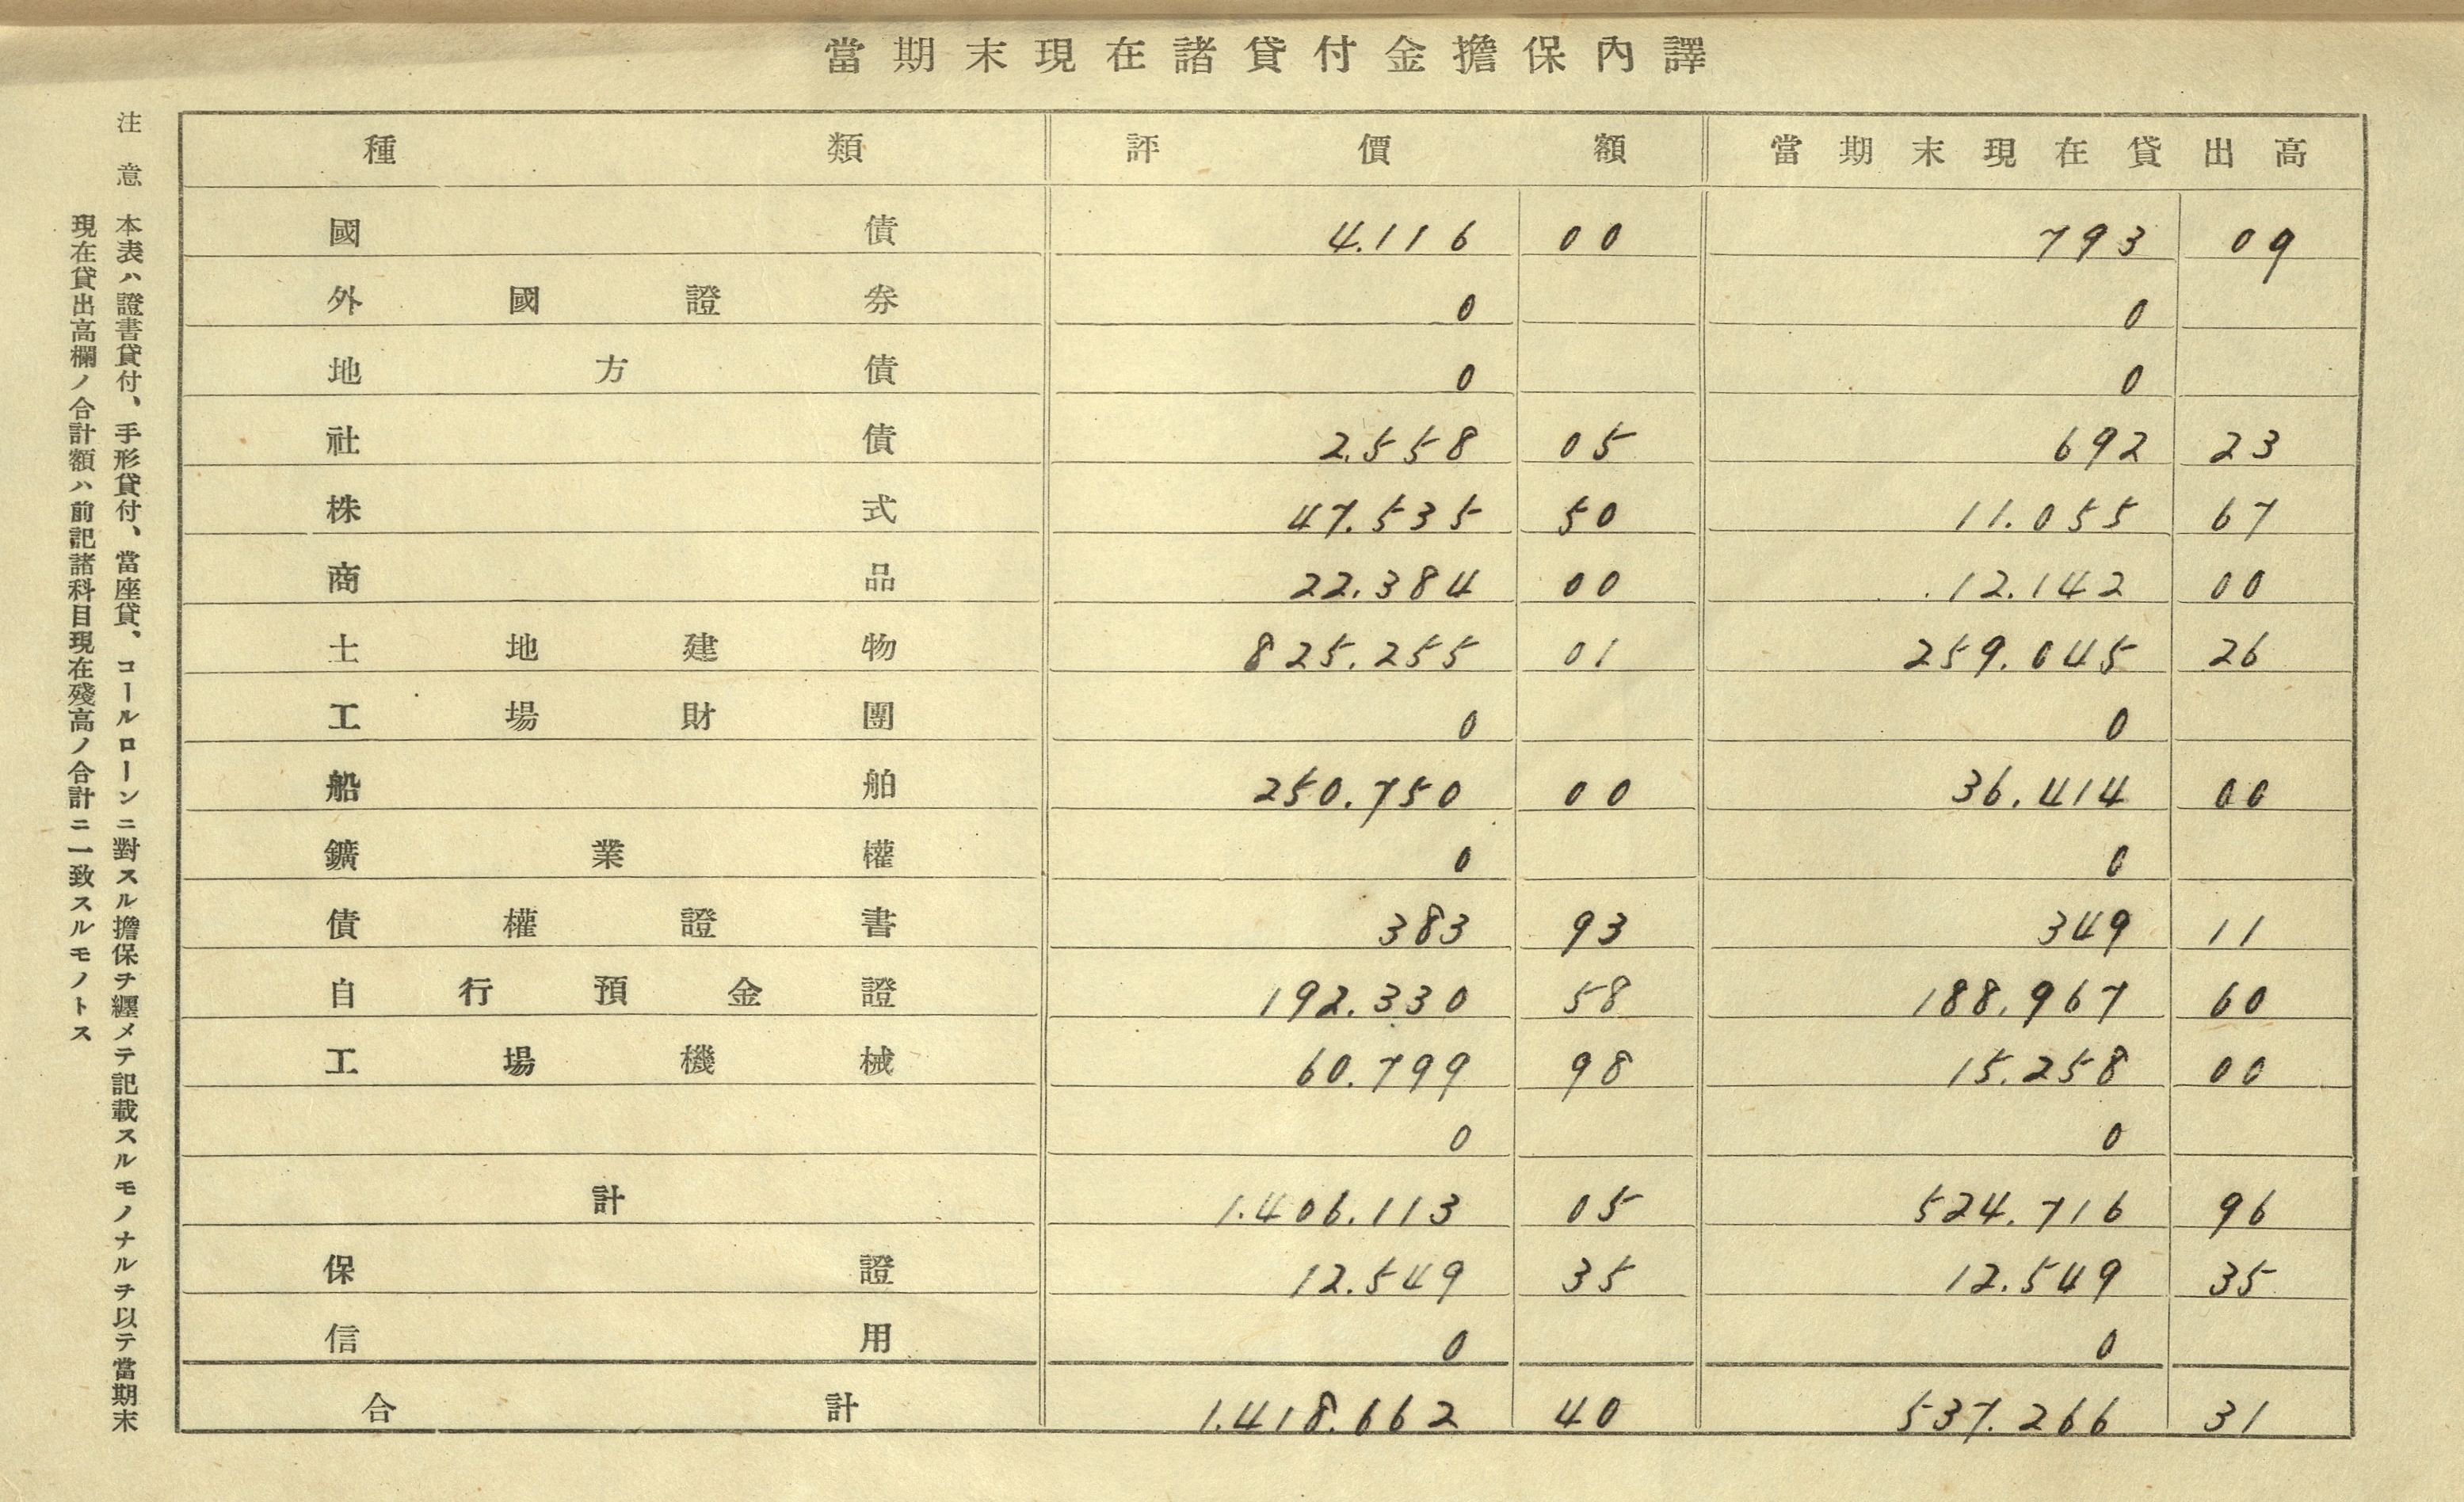 當期末現在諸貸付金擔保內譯
種類 評價額 當期末現在貸出高
國債 4.116 00 793 09
外國證券 0 0
地方債 0 0
社債 2.558 05 692 23
株式 47.535 50 11.055 67
商品 22.384 00 12.142 00
土地建物 825.255 01 259.045 26
工場財團 0 0
船舶 250.750 00 36.414 00
鑛業權 0 0
債權證書 383 93 349 11
自行預金證 192.330 58 188.967 60
工場機械 60.799 98 15.258 00
0 0
計 1.406.113 05 524.716 96
保證 12.549 35 12.549 35
信用 0 0
合計 1.418.662 40 537.266 31
注意 本表ハ證書貸付、手形貸付、當座貸、コールローンニ對スル擔保ヲ纒メテ記載スルモノナルヲ以テ當期末
現在貸出高欄ノ合計額ハ前記諸科目現在殘高ノ合計ニ一致スルモノトス